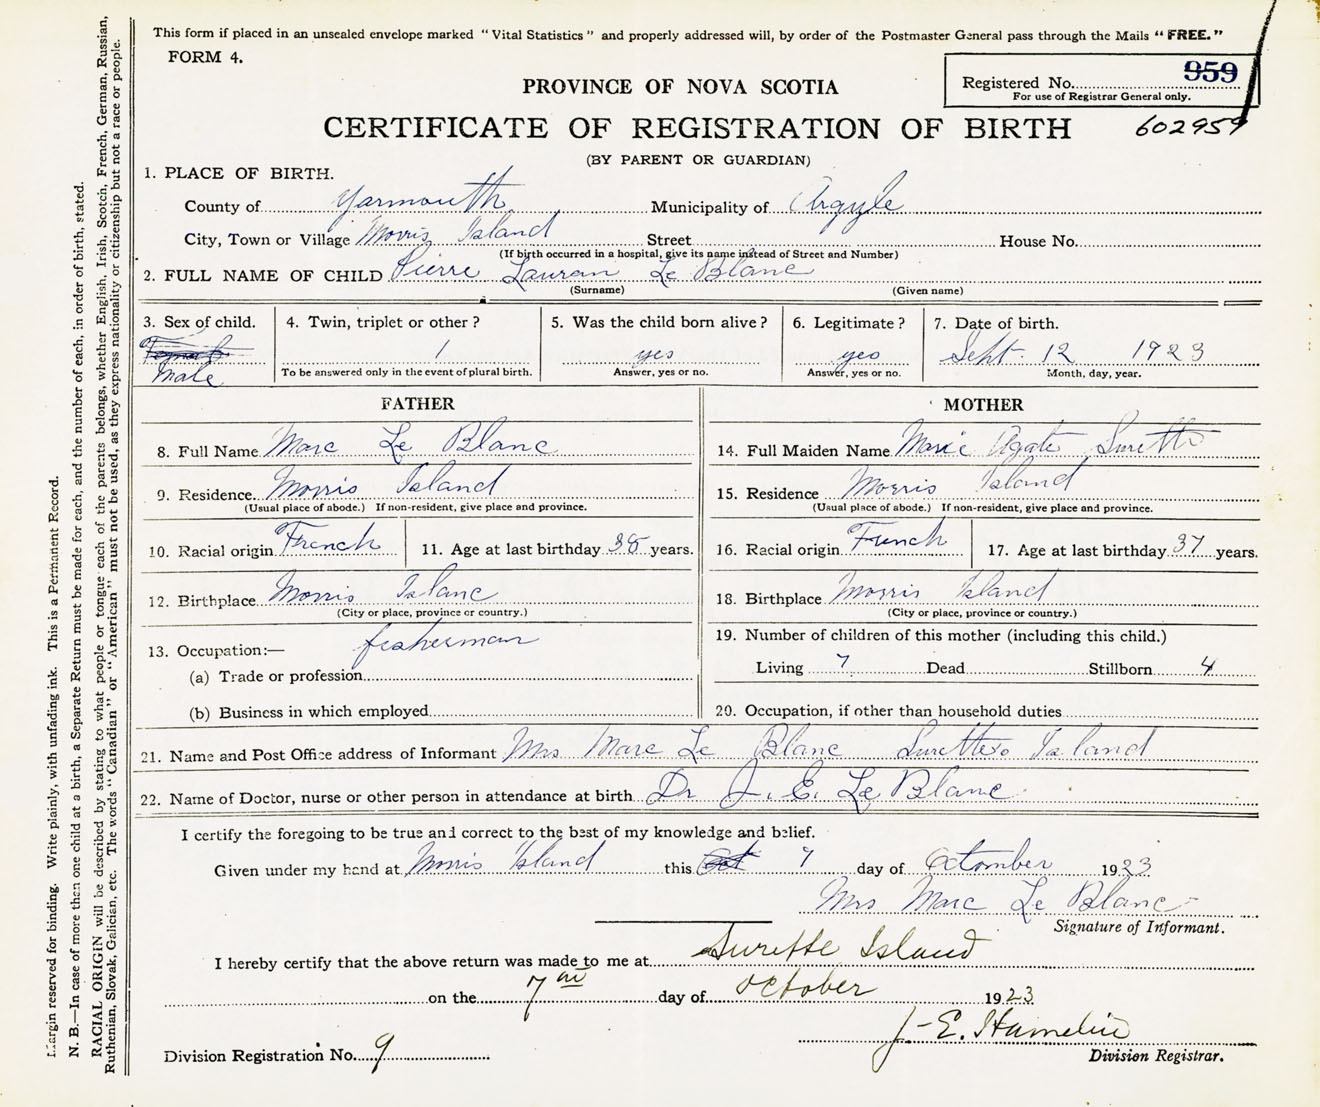 This form if placed in an unsealed envelope marked "Vital Statistics" and properly addressed will, by order of the Postmaster General pass through the Mails "FREE."
FORM 4.
Registered No. 959
For use of Registrar General only.
602959
PROVINCE OF NOVA SCOTIA
CERTIFICATE OF REGISTRATION OF BIRTH
(BY PARENT OR GUARDIAN)
1. PLACE OF BIRTH.
County of Yarmouth Municipality of Argyle
City, Town or Village Morris Island Street House No.
(If birth occurred in a hospital, give its name instead of Street and Number)
2. FULL NAME OF CHILD Pierre Lauran Le Blanc
(Surname) (Given name)
3. Sex of child. 4. Twin, triplet or other? 5. Was the child born alive? 6. Legitimate? 7. Date of birth.
1 yes yes Sept. 12 1923
Male To be answered only in the event of plural birth. Answer, yes or no. Answer, yes or no. Month, day, year.
FATHER MOTHER
8. Full Name Marc Le Blanc 14. Full Maiden Name Marie Agate Surette
9. Residence Morris Island 15. Residence Morris Island
(Usual place of abode.) If non-resident, give place and province. (Usual place of abode.) If non-resident, give place and province.
10. Racial origin French 11. Age at last birthday 38 years. 16. Racial origin French 17. Age at last birthday 37 years.
12. Birthplace Morris Islanc 18. Birthplace Morris Island
(City or place, province or country.) (City or place, province or country.)
13. Occupation:— fisherman 19. Number of children of this mother (including this child.)
(a) Trade or profession Living 7 Dead Stillborn 4
(b) Business in which employed 20. Occupation, if other than household duties
21. Name and Post Office address of Informant Mrs Marc Le Blanc Surettes Island
22. Name of Doctor, nurse or other person in attendance at birth Dr J. E. Le Blanc
I certify the foregoing to be true and correct to the best of my knowledge and belief.
Given under my hand at Morris Island this Oct 7 day of Octomber 1923
Mrs Marc Le Blanc
Signature of Informant.
I hereby certify that the above return was made to me at Surette Island
on the 7 day of October 1923
J-E. Hamelin
Division Registration No. 9 Division Registrar.
Margin reserved for binding. Write plainly, with unfading ink. This is a Permanent Record.
N. B.—In case of more than one child at a birth, a Separate Return must be made for each, and the number of each, in order of birth, stated.
RACIAL ORIGIN will be described by stating to what people or tongue each of the parents belongs, whether English, Irish, Scotch, French, German, Russian,
Ruthenian, Slovak, Galician, etc. The words "Canadian" or "American" must not be used, as they express nationality or citizenship but not a race or people.